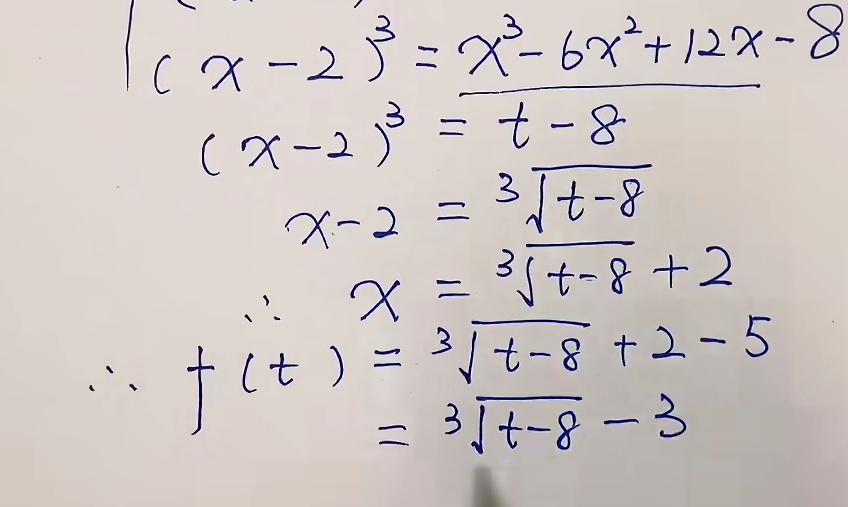 (x-2)³ = x³-6x²+12x-8
(x-2)³ = t-8
x-2 = ³√(t-8)
∴ x = ³√(t-8) +2
∴ f(t) = ³√(t-8) +2-5
= ³√(t-8) -3